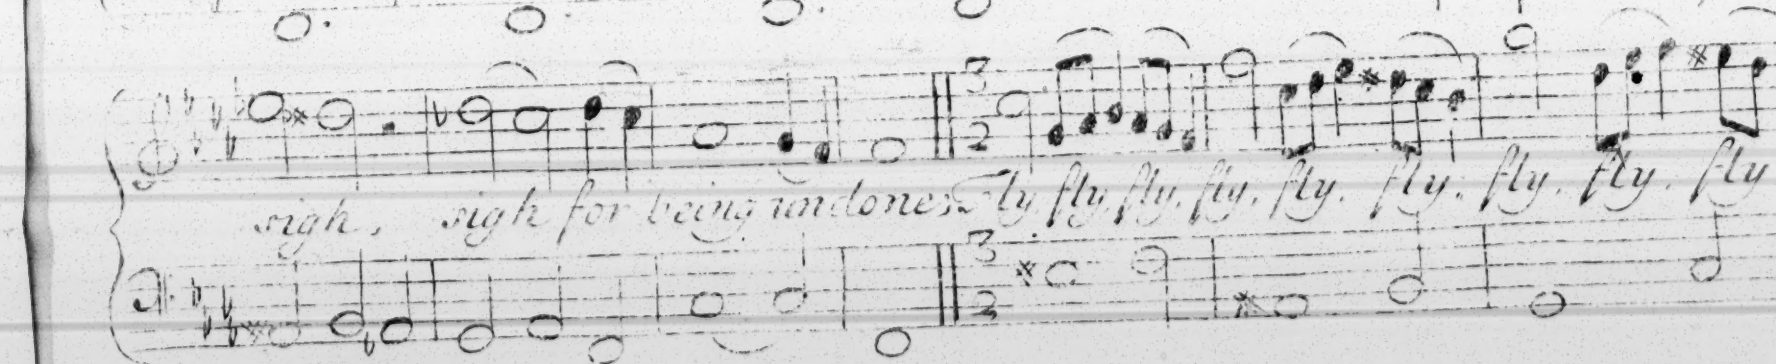 3
2
sigh, sigh for being undone: Fly fly, fly, fly, fly, fly, fly, fly, fly
3
2